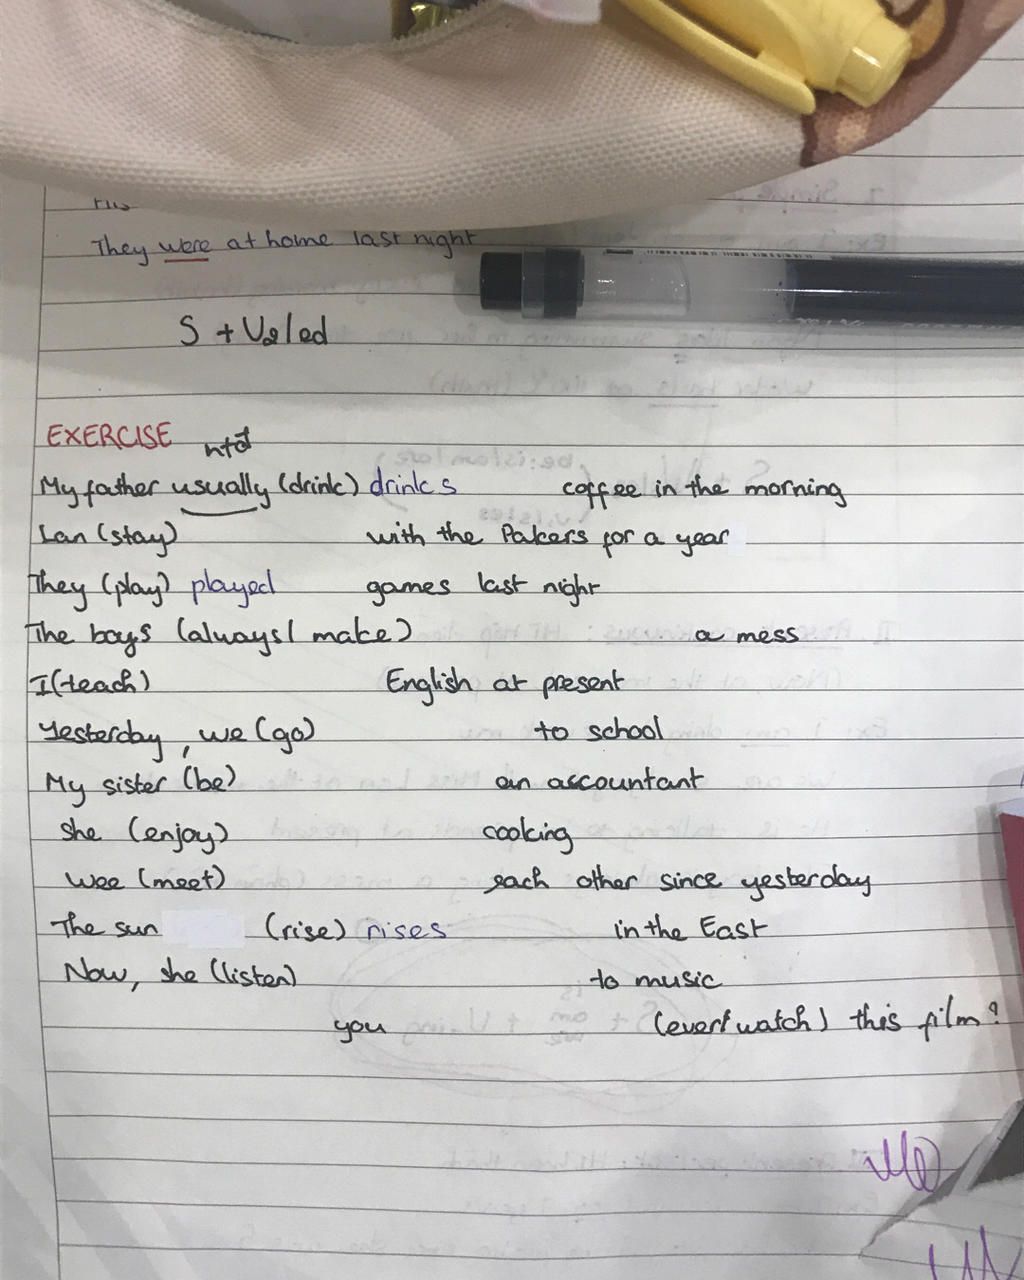 They were at home last night
S + V2/ed
EXERCISE
ntđ
My father usually (drink) drinks coffee in the morning
Lan (stay) with the Pakers for a year
They (play) played games last night
The boys (always/ make) a mess
I(teach) English at present
Yesterday, we (go) to school
My sister (be) an accountant
she (enjoy) cooking
Wee (meet) each other since yesterday
The sun (rise) rises in the East
Now, she (listen) to music
you (ever/watch) this film?